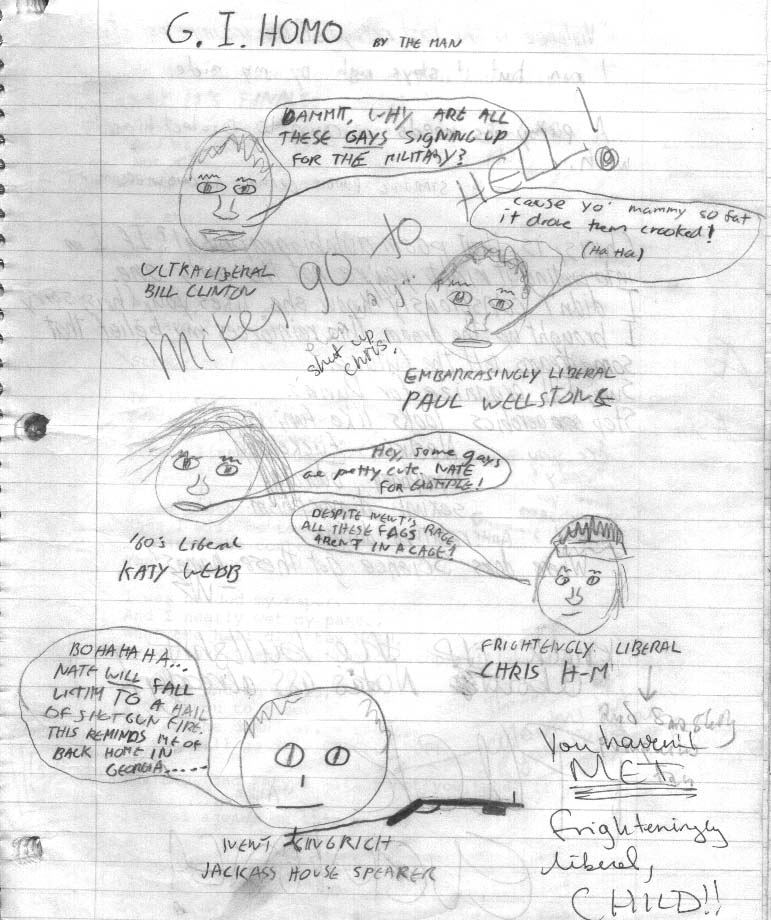 G. I. HOMO BY THE MAN
DAMMIT, WHY ARE ALL
THESE GAYS SIGNING UP
FOR THE MILITARY?
ULTRALIBERAL
BILL CLINTON
Mike, go to HELL!
cause yo' mammy so fat
it drove them crooked!
(Ha Ha)
shut up,
Chris!
EMBARRASINGLY LIBERAL
PAUL WELLSTONE
Hey, some gays
are pretty cute. NATE
FOR EXAMPLE!
'60's Liberal
KATY WEBB
DESPITE NEWT'S RAGE,
ALL THESE FAGS
AREN'T IN A CAGE!
FRIGHTENGLY LIBERAL
CHRIS H-M
BOHAHAHA...
NATE WILL FALL
VICTIM TO A HAIL
OF SHOTGUN FIRE.
THIS REMINDS ME OF
BACK HOME IN
GEORGIA.....
NEWT GINGRICH
JACKASS HOUSE SPEAKER
You haven't
MET
frighteningly
liberal,
CHILD!!